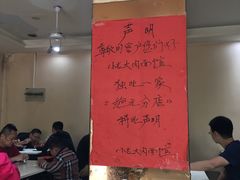 声明
尊敬的客户您们好
小老大肉面馆
独此一家
绝无分店
特此声明
小老大肉面馆